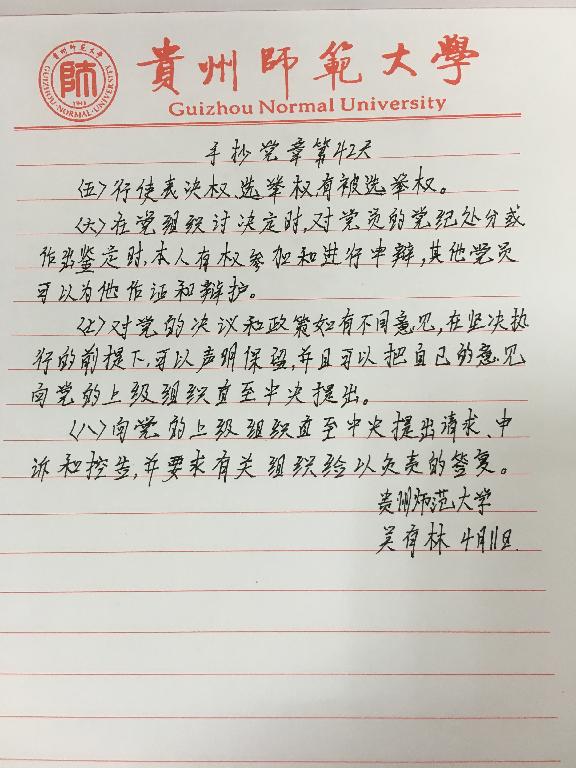 貴州師範大學
貴州師範大学
師
GUIZHOU·NORMAL·UNIVERSITY
1941
Guizhou Normal University
手抄党章第42天
〈五〉行使表决权、选举权,有被选举权。
〈六〉在党组织讨决定时,对党员的党纪处分或
作出鉴定时,本人有权参加和进行申辩,其他党员
可以为他作证和辩护。
〈七〉对党的决议和政策如有不同意见,在坚决执
行的前提下,可以声明保留,并且可以把自己的意见
向党的上级组织直至中央提出。
〈八〉向党的上级组织直至中央提出请求、申
诉和控告,并要求有关组织给以负责的答复。
贵州师范大学
吴有林 4月11日